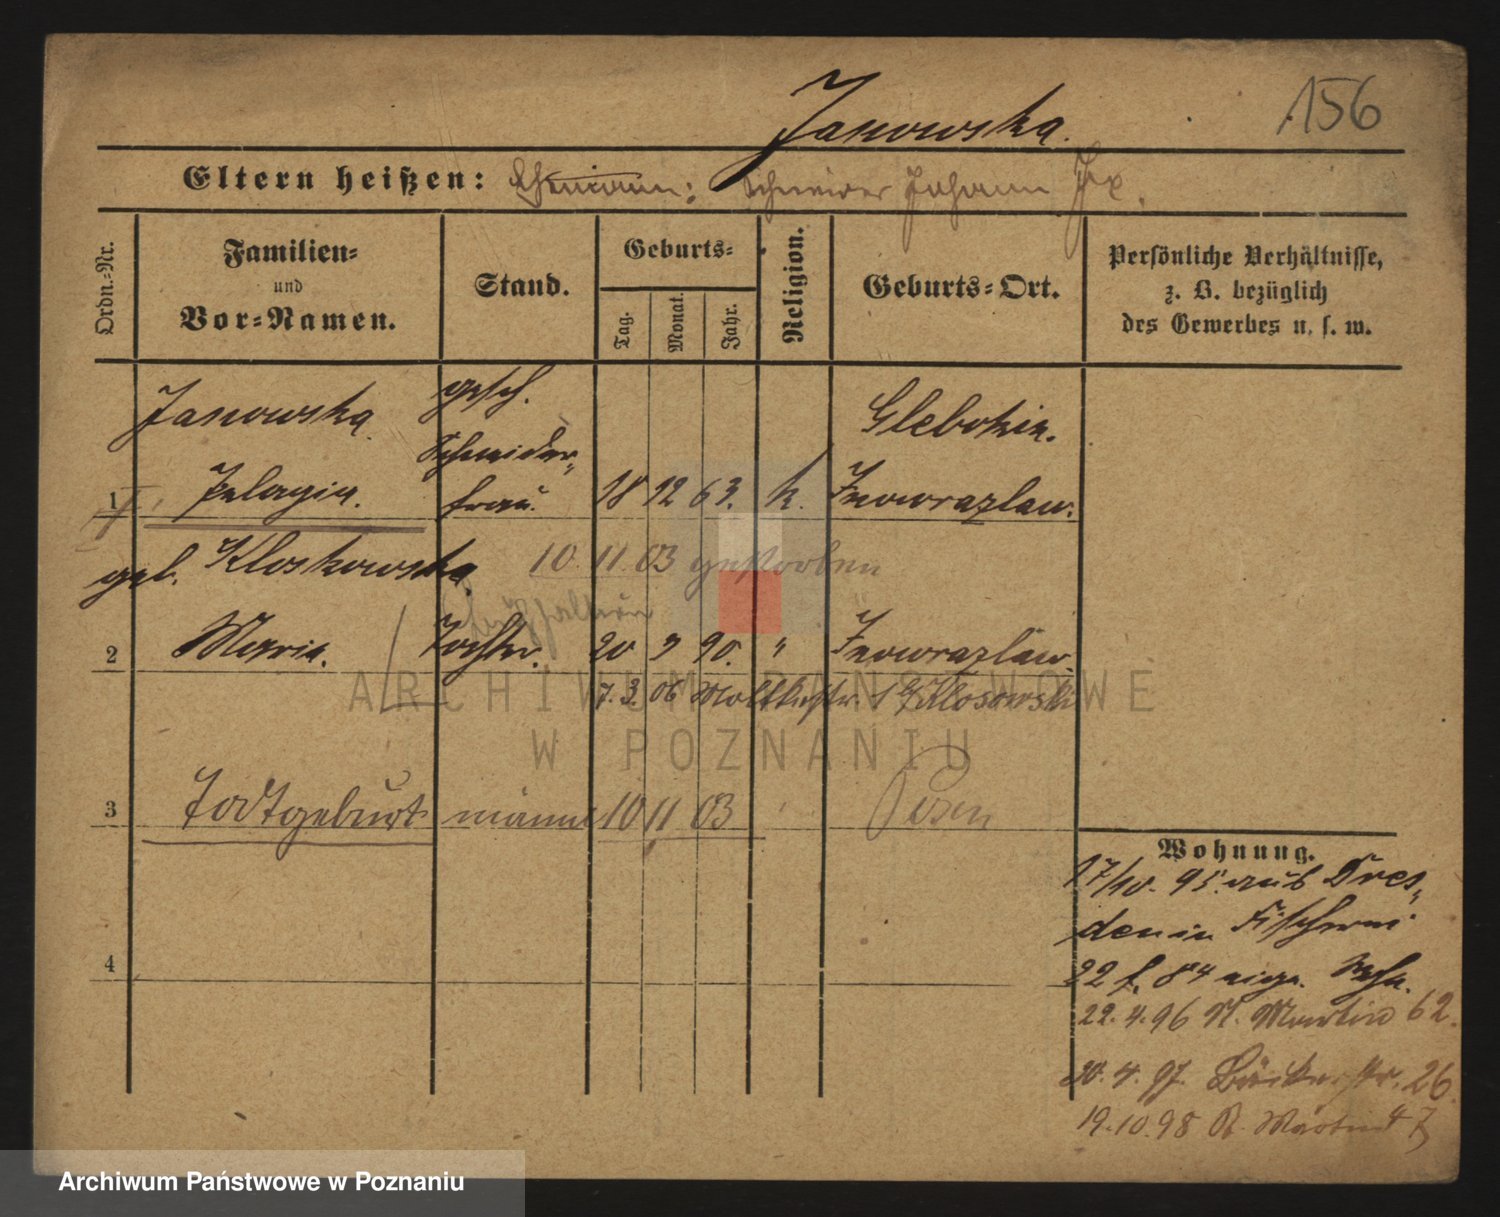 Janowska.
156
Eltern heißen: Ehemann: Schneider Johann
Ordn.=Nr.
Familien=
und
Vor=Namen.
Stand.
Geburts=
Tag.
Monat.
Jahr.
Religion.
Geburts=Ort.
Persönliche Verhältnisse,
z. B. bezüglich
des Gewerbes u. s. w.
Janowska gesch.
Schneider-
Glebokin.
1 Pelagia. frau. 18 12 63. k. Inowrazlaw.
geb. Kloskowska.
10. 11. 03 gestorben
2 Maria. Tochter. 20 9 90. " Inowrazlaw.
7. 3. 06 Moltkestr. Klosowski
3 Todtgeburt männl 10 11 03 Posen
4
Wohnung.
17/10. 95. aus Dres-
den in Fischerei
22 f. 84 eige. Woh.
22. 4. 96 St. Martin 62.
20. 4. 97. Bäckerstr. 26.
19. 10. 98 St. Martin 47
ARCHIWUM PAŃSTWOWE
W POZNANIU
Archiwum Państwowe w Poznaniu